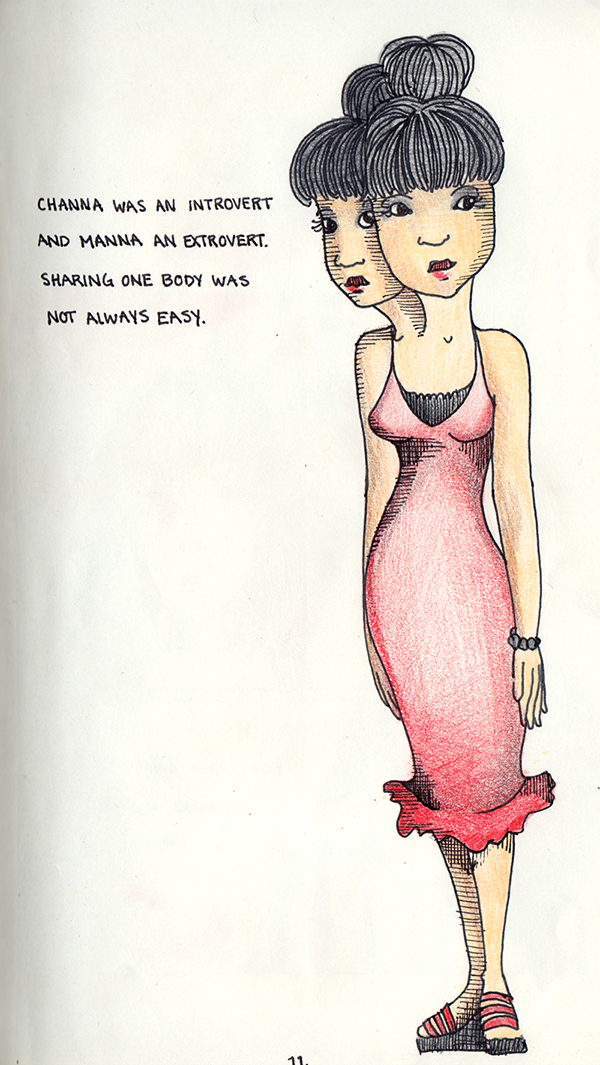 CHANNA WAS AN INTROVERT
AND MANNA AN EXTROVERT.
SHARING ONE BODY WAS
NOT ALWAYS EASY.
11.